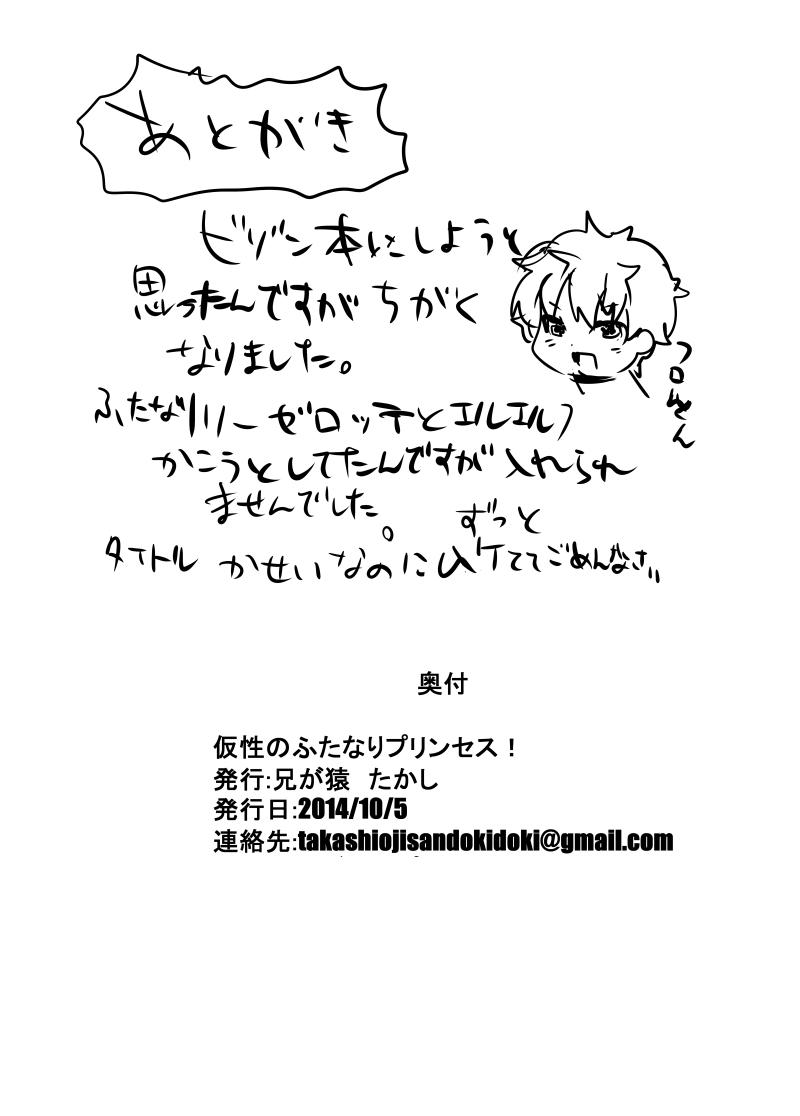 あとがき
ビゾン本にしようと
思ったんですがちがく
なりました。
ふたなりリーゼロッテとエルエルフ
かこうとしてたんですが入れられ
ませんでした。ずっと
タイトル かせいなのにムケててごめんなさい
奥付
仮性のふたなりプリンセス！
発行:兄が猿　たかし
発行日:2014/10/5
連絡先:takashiojisandokidoki@gmail.com